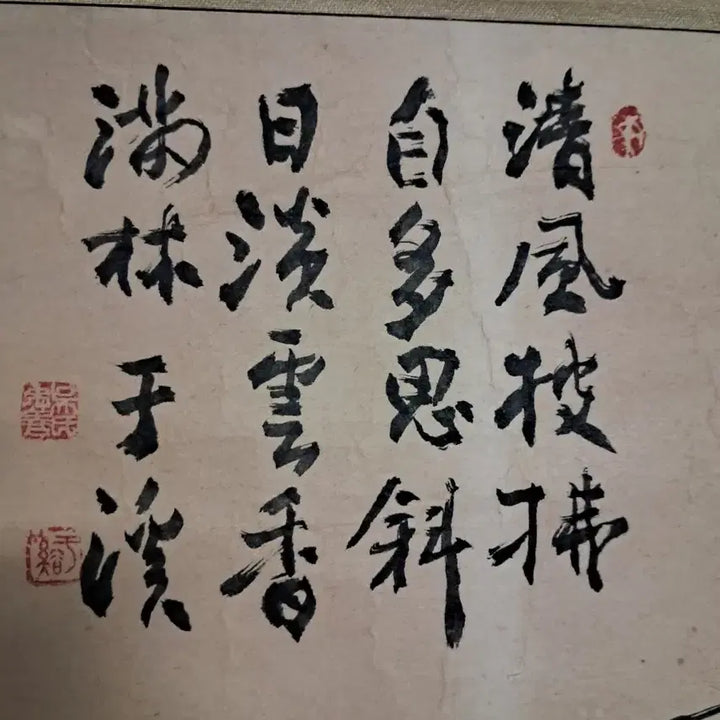 清風披拂
自多思斜
日淡雲香
滿林于溪